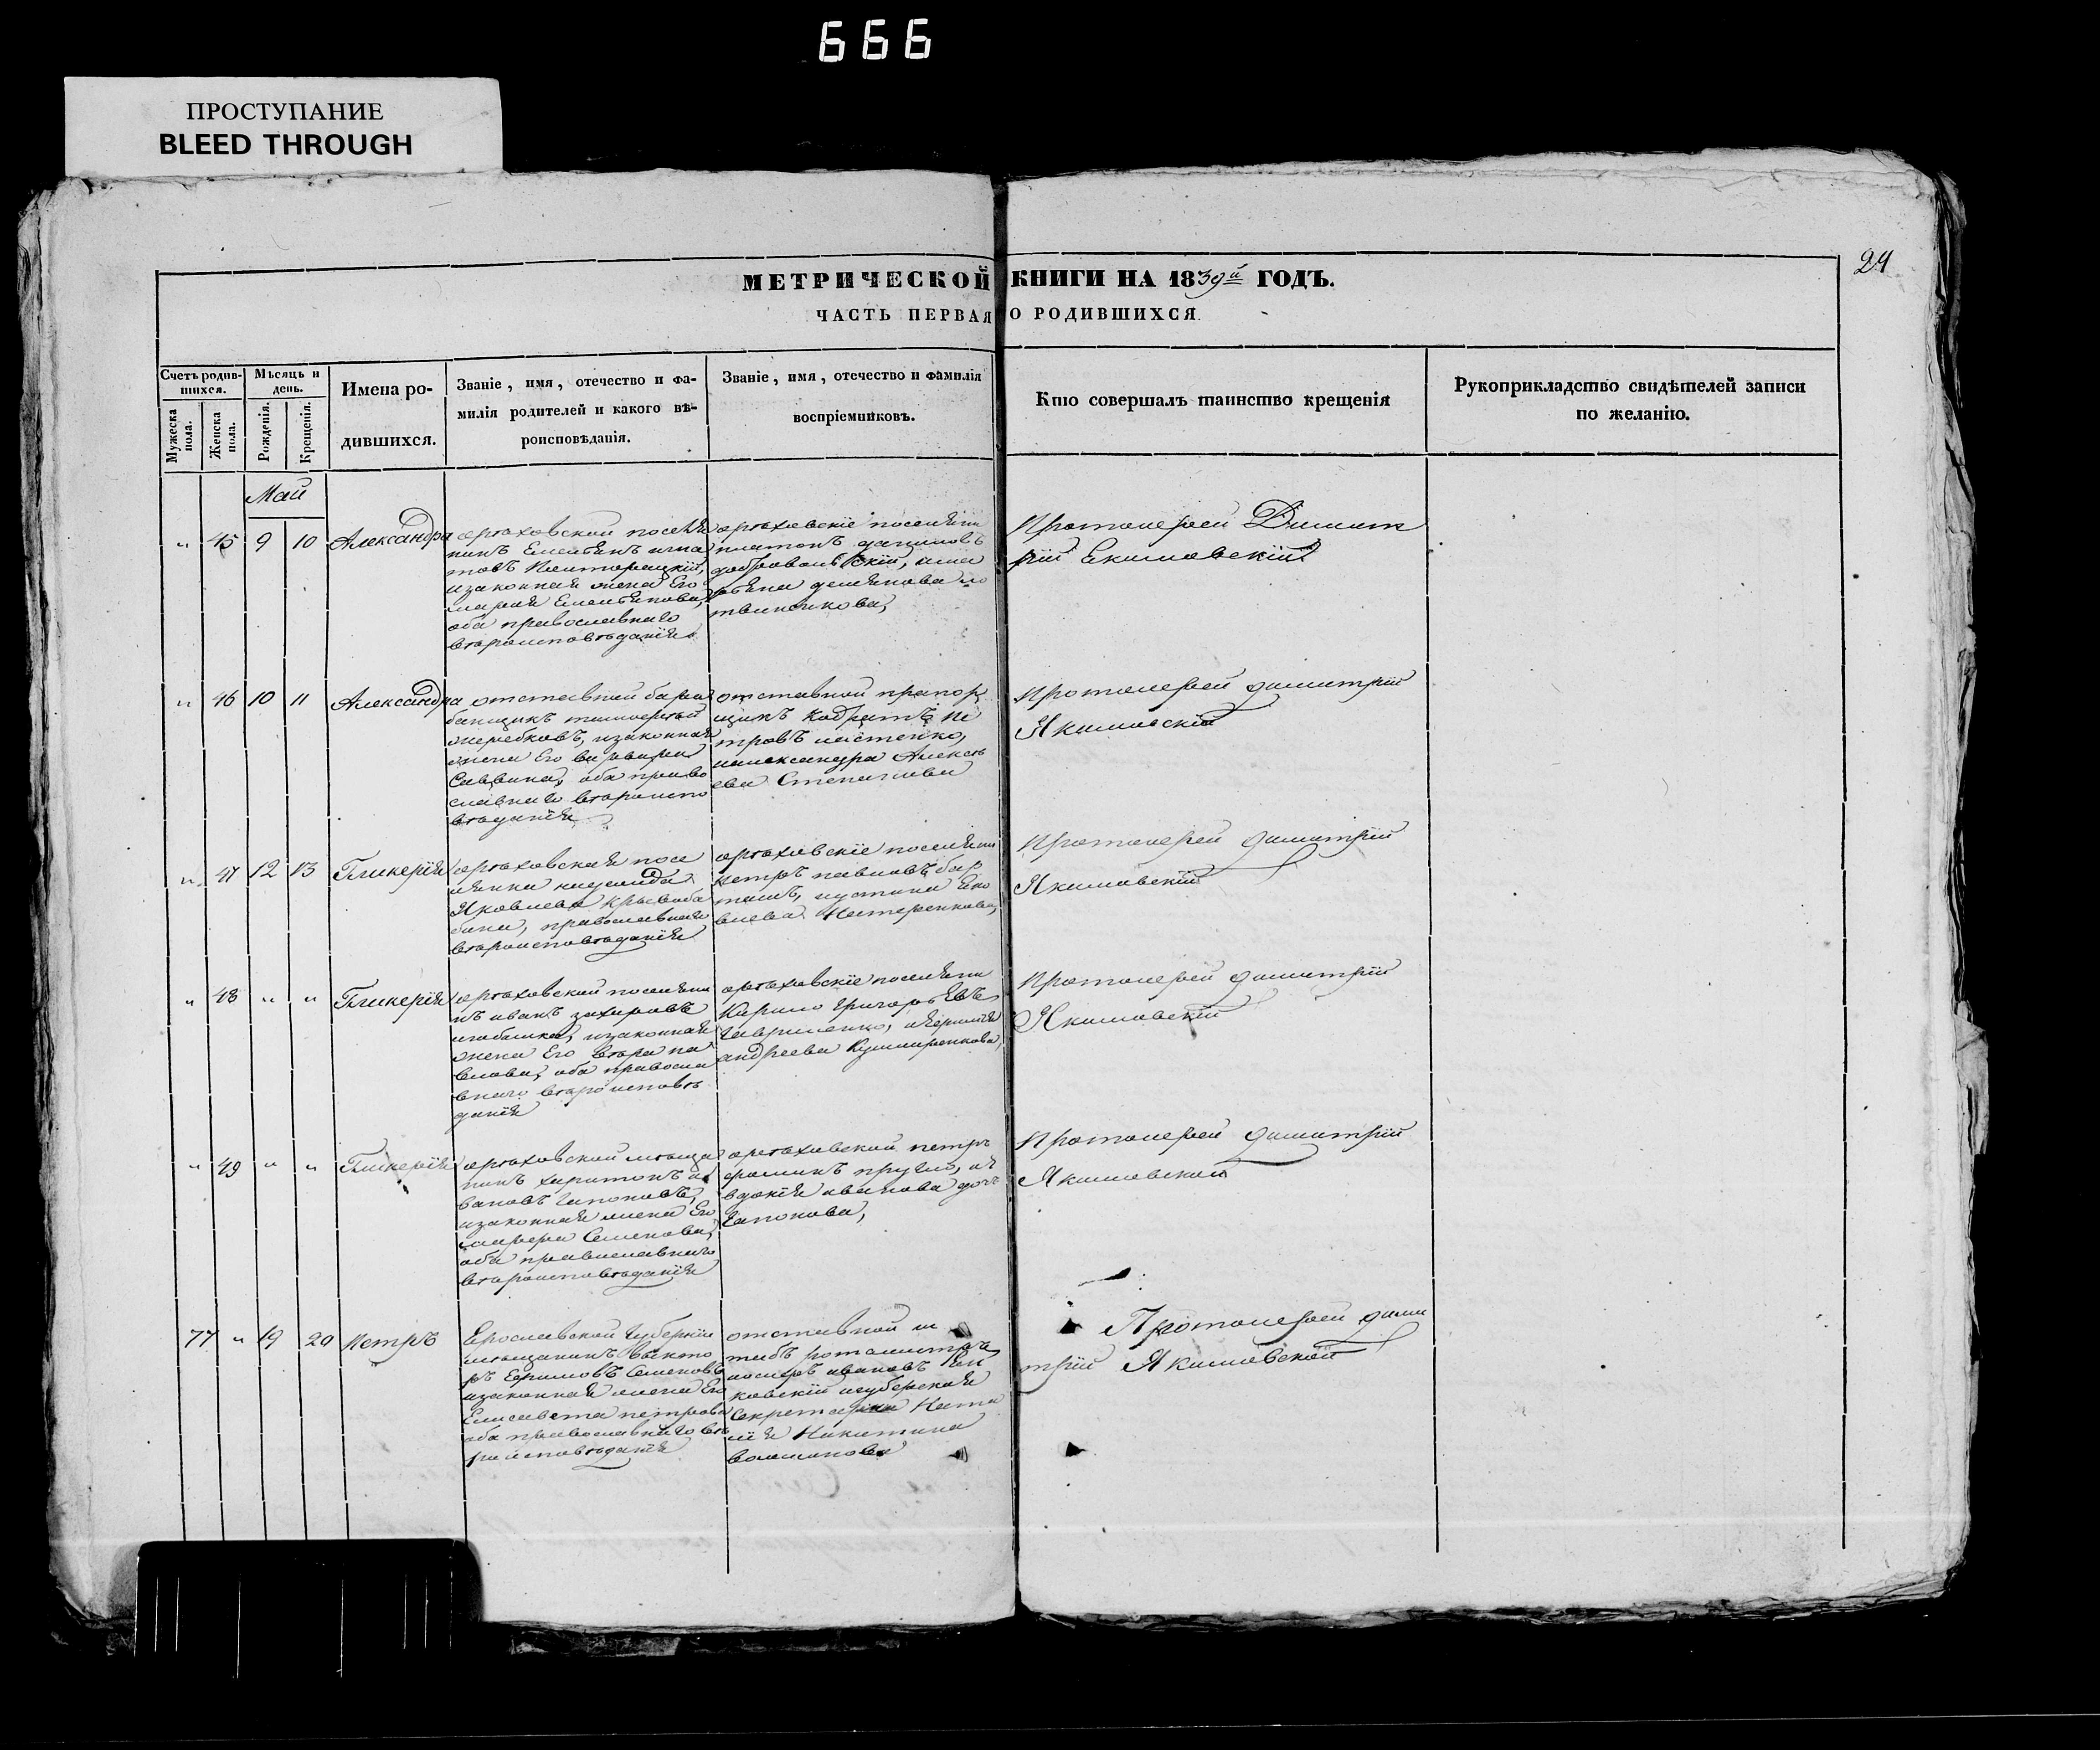 666
ПРОСТУПАНИЕ
BLEED THROUGH
24
МЕТРИЧЕСКОЙ КНИГИ НА 1839й ГОДЪ.
ЧАСТЬ ПЕРВАЯ О РОДИВШИХСЯ.
Счетъ родив-
шихся.
Мужеска
пола.
Женска
пола.
Мѣсяцъ и
день.
Рожденія.
Крещенія.
Имена ро-
дившихся.
Званіе, имя, отечество и фа-
милія родителей и какого вѣ-
роисповѣданія.
Званіе, имя, отечество и фамилія
воспріемниковъ.
Кто совершалъ таинство крещенія
Рукоприкладство свидѣтелей записи
по желанію.
Май
" 45 9 10 Александра
орѣховский поселя
нинъ Емельянъ игна
товъ
изаконная жена Его
мария Емельянова,
оба православнаго
вѣроисповѣданія
орѣховскіе поселяни
платонъ даниловъ
добровольскій,
демянова
Протоиерей Димит
рій Екимовскій
" 46 10 11 Александра
отставной бараб
банщикъ тимофей
жеребковъ, изаконная
жена Его варвара
Саввина, оба право
славнаго вѣроиспо
вѣданія
отставной прапор
щикъ Кодратъ пе
тровъ
иалександра Алексѣ
ева Степанова
Протоиерей димитрій
Якимовскій
" 47 12 13 Гликерія
орѣховская посе
лянка
Яковлева
православная
вѣроисповѣданія
орѣховскіе поселяни
петръ павловъ
иустина Яко
влева Нестеренкова,
Протоиерей димитрій
Якимовскій
" 48 " " Гликерія
орѣховский поселяни
нъ иванъ захаровъ
изаконная
жена Его вѣра па
влова, оба правосла
внаго вѣроисповѣ
данія
орѣховскіе поселяни
Кирило григорьевъ
гавриленко,
андреева
Протоиерей димитрій
Якимовскій
" 49 " " Гликерія
орѣховской мѣща
нинъ харитонъ и
вановъ гапоновъ,
изаконная жена Его
марфа Семенова,
оба православнаго
вѣроисповѣданія
орѣховской петръ
иѣ
вдокія иванова доч
гапонова,
Протоиерей димитрій
Якимовской
77 " 19 20 Петръ
Ерославской губерніи
мѣщанинъ викто
ръ Ефимовъ Семеновъ
изаконная жена Его
Елисавета петрова
оба православнаго вѣ
роисповѣданія
отставной ш
табъ ротмистръ
иванъ
ковскій игуберская
Секретарша Ната
лія Никитина
Протоиерей дими
трій Якимовской